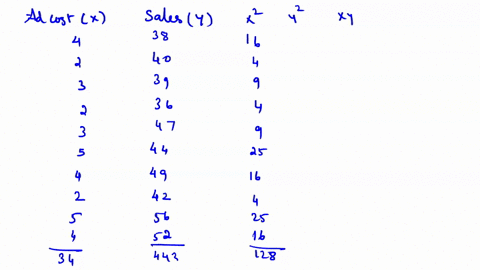 Ad cost (x) Sales (y) x² y² xy
4 38 16
2 40 4
3 39 9
2 36 4
3 47 9
5 44 25
4 49 16
2 42 4
5 56 25
4 52 16
34 443 128